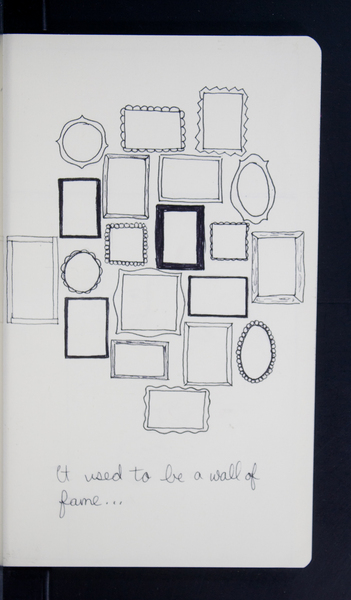 It used to be a wall of
fame...